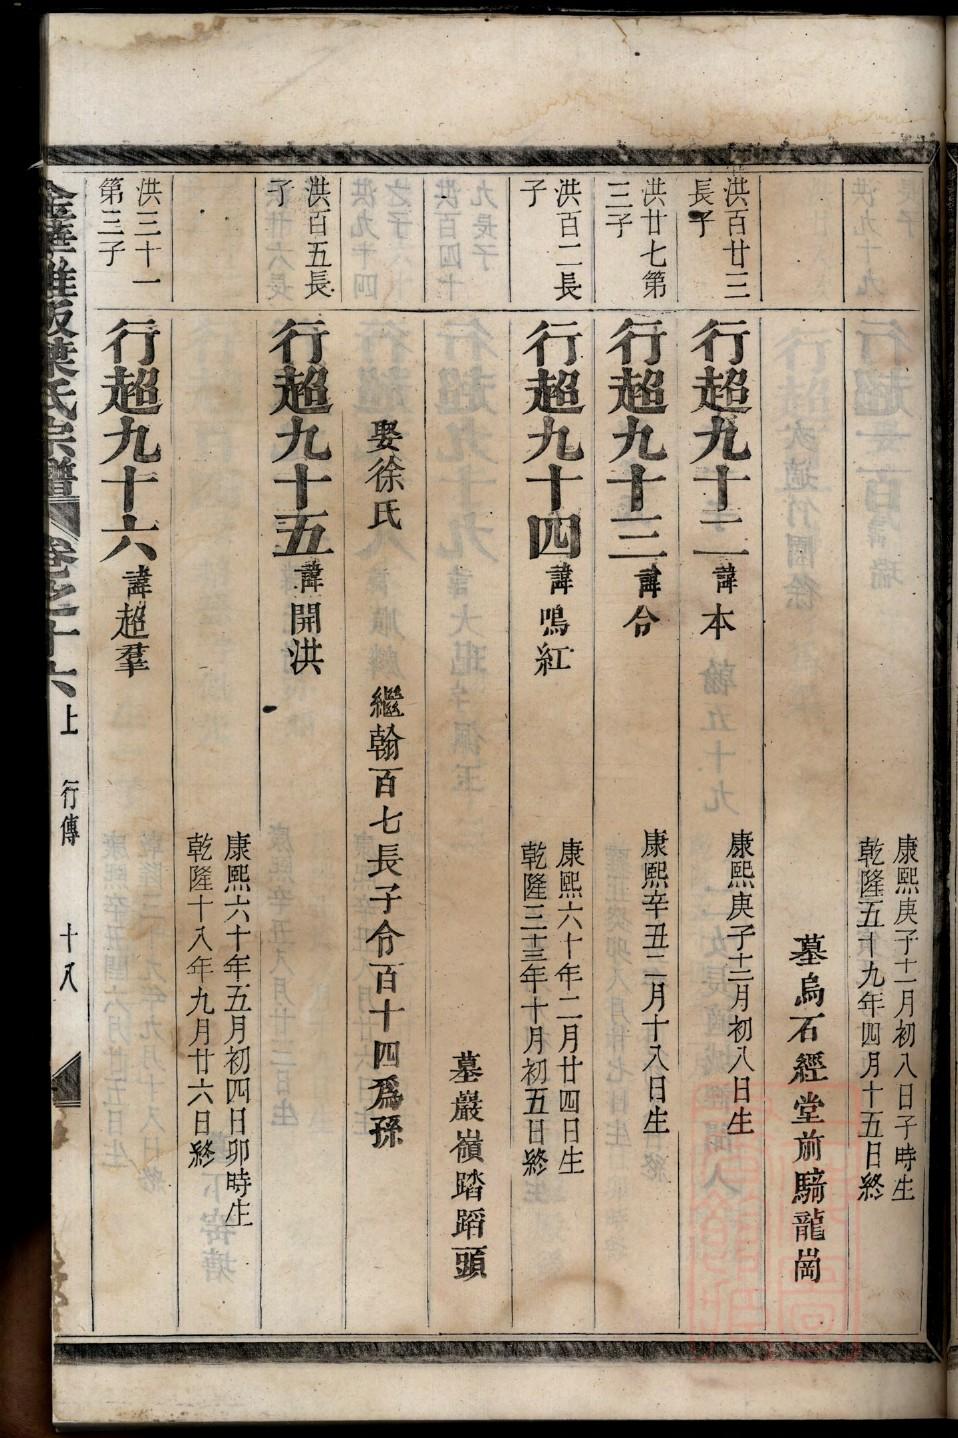 康熙庚子十一月初八日子時生
乾隆五十九年四月十五日終
墓烏石經堂前騎龍崗
洪百廿三
長子
行超九十二
諱本
康熙庚子十二月初八日生
洪廿七第
三子
行超九十三
諱令
康熙辛丑二月十八日生
洪百二長
子
行超九十四
諱鳴紅
康熙六十年二月廿四日生
乾隆三十三年十月初五日終
墓巖嶺踏蹈頭
娶徐氏
繼翰百七長子令百十四爲孫
洪百五長
子
行超九十五
諱開洪
康熙六十年五月初四日卯時生
乾隆十八年九月廿六日終
洪三十一
第三子
行超九十六
諱超羣
葉氏宗譜
卷之十六上
行傳
十八